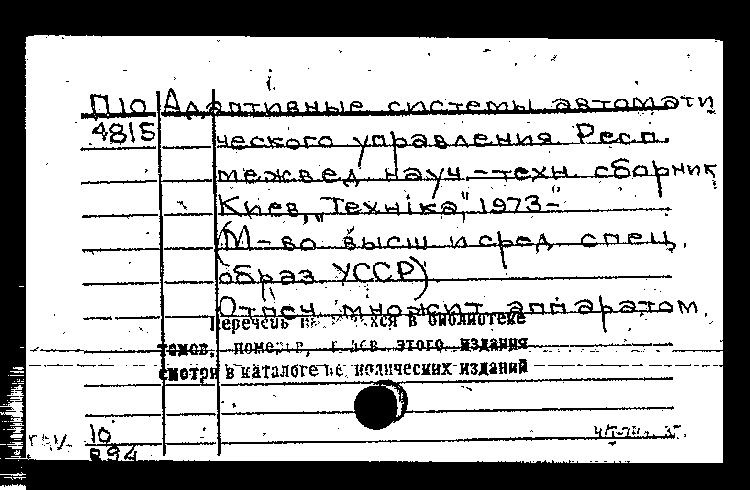 П10 Адаптивные системы автомати
4815 ческого управления Респ.
межвед науч.-техн. сборник
Киев, "Техніка," 1973-
(М-во высш и сред спец.
образ. УССР)
Отпеч множит аппаратом.
Перечень в библиотеке
томов, номеров, этого издания
смотри в каталоге периодических изданий
10
894